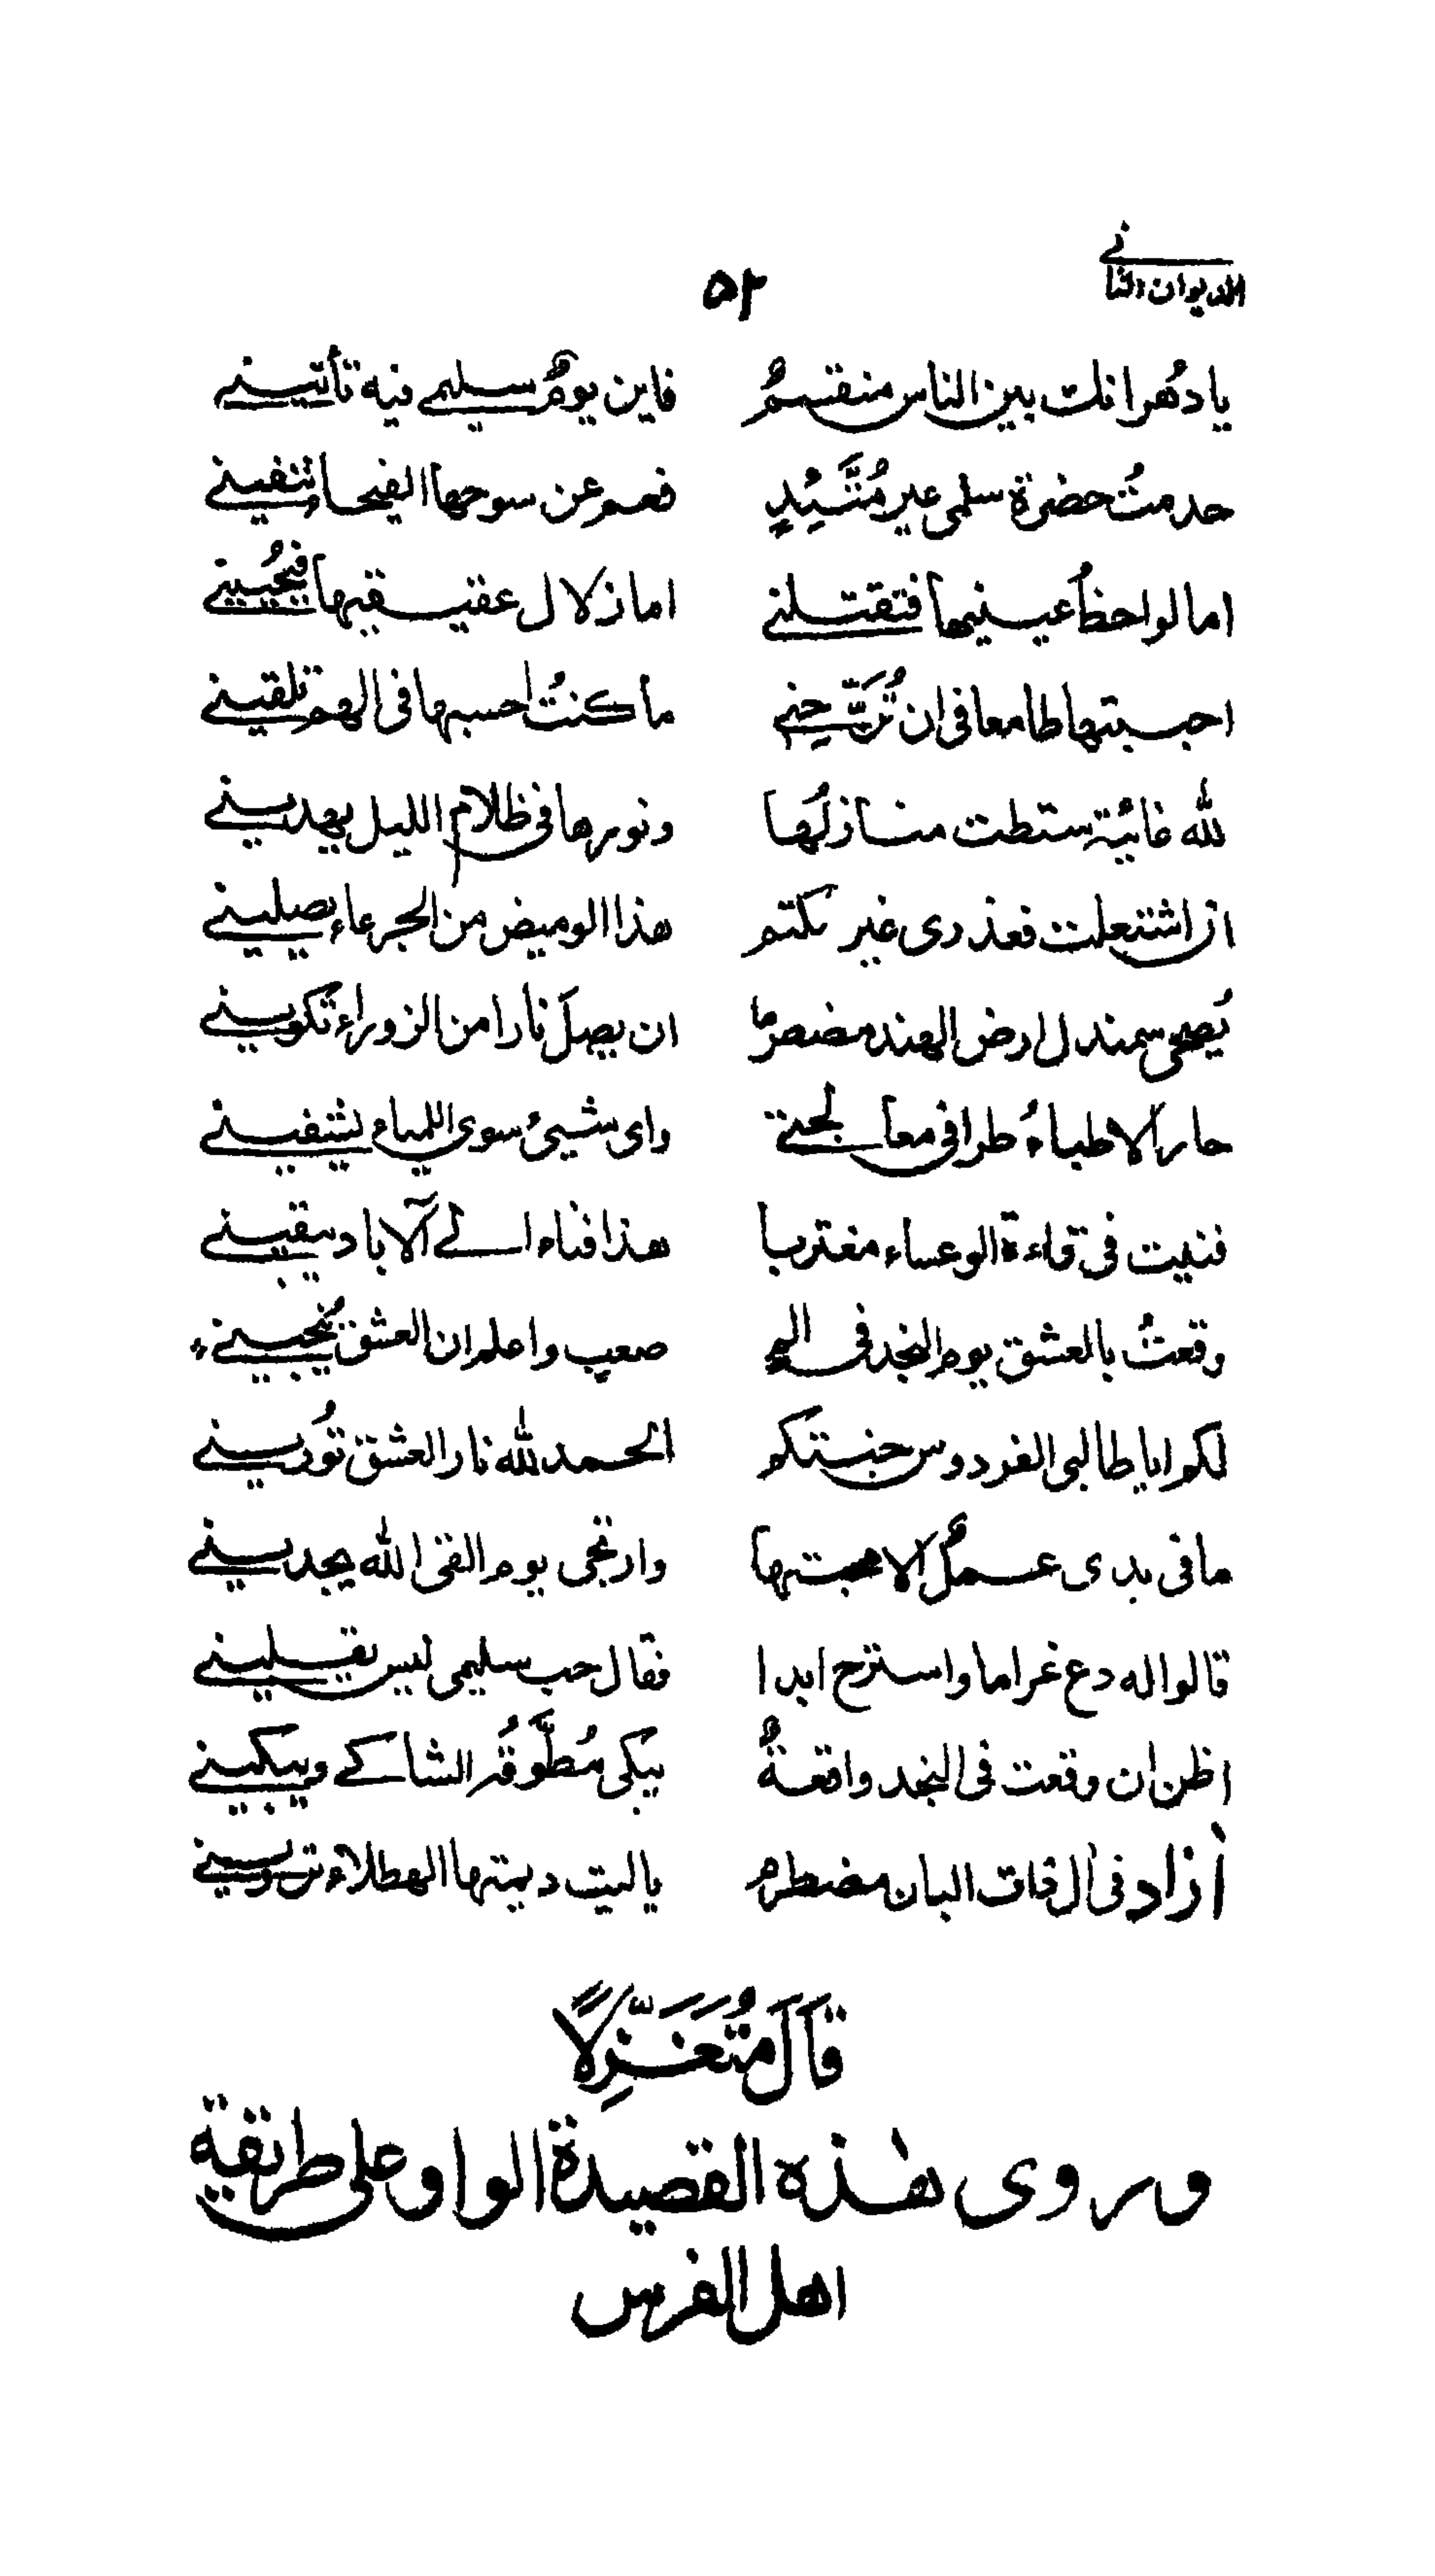 الديوان الثاني
٥٢
يا دهر انك بين الناس منقسمٌ فاين يومٌ سليمى فيه تأتيني
خدمتُ حضرة سلمى غير مُتَّئِدٍ فعم عن سوحها الفيحاء تنفيني
اما لواحظُ عينيها فتقتلني اما زلال عقيقيها فيُحييني
احببتها طامعا في ان تُرَبِّحني ما كنتُ احسبها في الهم تلقيني
لله غانية شطت منازلُها ونورها في ظلام الليل يهديني
از اشتعلت فعذري غير مكتتم هذا الوميض من الجرعاء يصليني
يُضحى سمندل ارض الهند مضطرما ان يصلَ نارا من الزوراء تكويني
حار الاطباءُ طرا في معالجتي واي شيئ سوى اللمياء يشفيني
فنيت في قاعة الوعساء مغتربا هذا فناء الى الآباد يبقيني
وقعتُ بالعشق يوم النجد في الم صعب واعلم ان العشق يُنجيني
لكم ايا طالبي الفردوس جنتكم الحمد لله نار العشق تُوريني
ما في يدي عملٌ الا محبتها وارتجى يوم القى الله يجديني
قالوا له دع غراما واسترح ابدا فقال حب سليمى ليس يقليني
اظن ان وقعت في النجد واقعةٌ يبكي مُطَوَّقُه الشاكي ويبكيني
آزاد في اثلات البان مضطرم يا ليت ديمتها الهطلاء ترويني
قَالَ مُتَغَزِّلًا
وروى هٰذه القصيدة الواو على طريقة
اهل الفرس